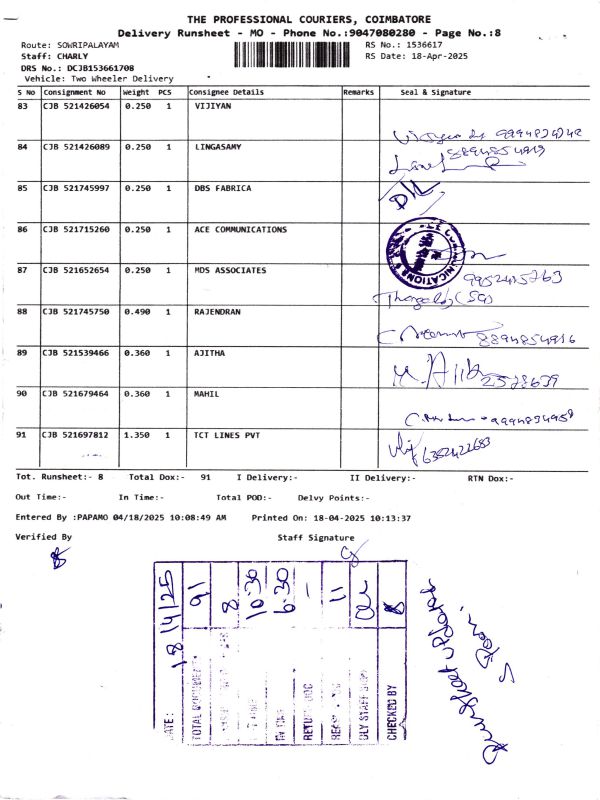 THE PROFESSIONAL COURIERS, COIMBATORE
Delivery Runsheet - MO - Phone No.:9047080280 - Page No.:8
Route: SOWRIPALAYAM RS No.: 1536617
Staff: CHARLY RS Date: 18-Apr-2025
DRS No.: DCJB153661708
Vehicle: Two Wheeler Delivery
S No Consignment No Weight PCS Consignee Details Remarks Seal & Signature
83 CJB 521426054 0.250 1 VIJIYAN
84 CJB 521426089 0.250 1 LINGASAMY
8894854919
85 CJB 521745997 0.250 1 DBS FABRICA
86 CJB 521715260 0.250 1 ACE COMMUNICATIONS
87 CJB 521652654 0.250 1 MDS ASSOCIATES
9952415763
88 CJB 521745750 0.490 1 RAJENDRAN
8894854916
89 CJB 521539466 0.360 1 AJITHA
2578639
90 CJB 521679464 0.360 1 MAHIL
91 CJB 521697812 1.350 1 TCT LINES PVT
6382422683
Tot. Runsheet:- 8 Total Dox:- 91 I Delivery:- II Delivery:- RTN Dox:-
Out Time:- In Time:- Total POD:- Delvy Points:-
Entered By :PAPAMO 04/18/2025 10:08:49 AM Printed On: 18-04-2025 10:13:37
Verified By Staff Signature
DATE: 18/4/25
TOTAL DOCUMENTS 91
8
10:30
6:30
11
DLY STAFF SIGN
CHECKED BY